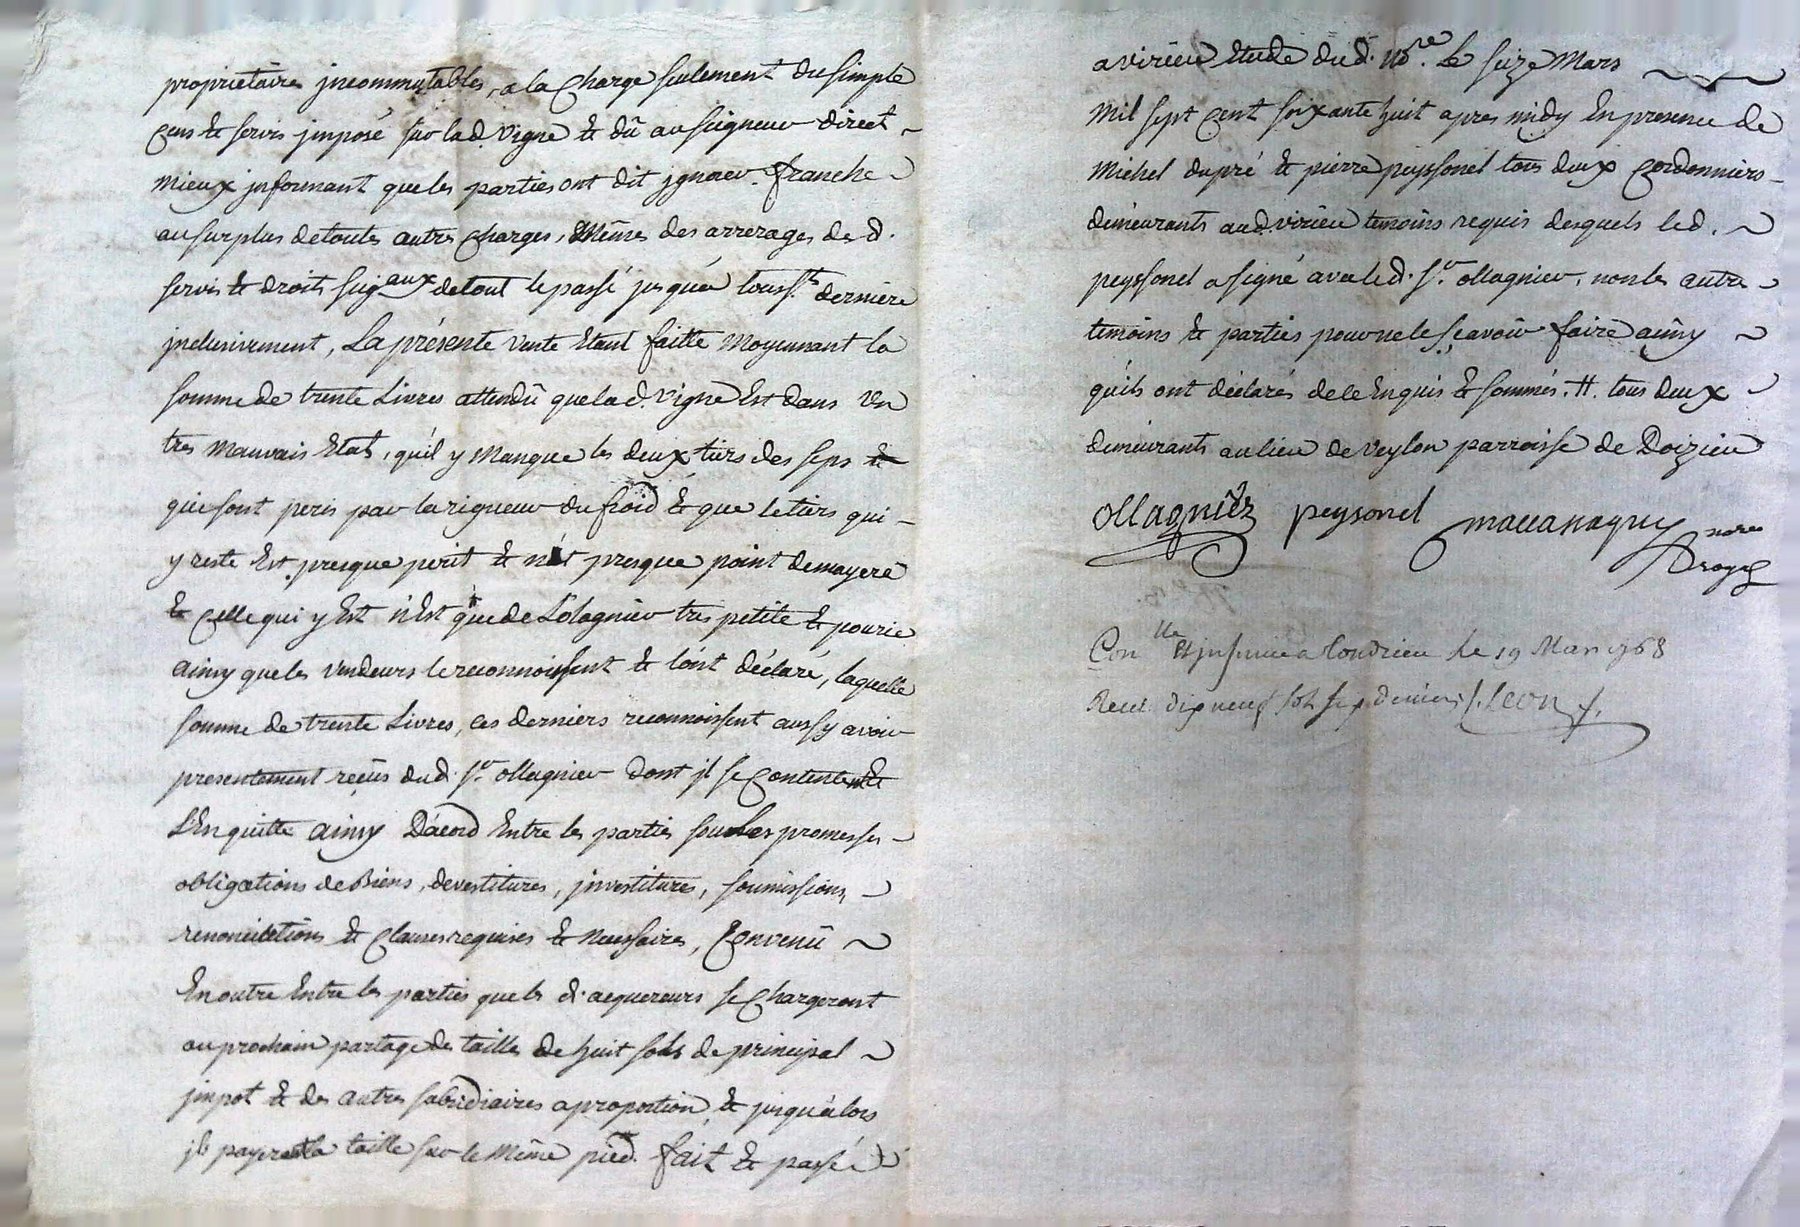 proprietaires jncommutables, a la Charge seulement du simple
Cens & servis jmposé sur la d. Vigne & dû au seigneur direct
Mieux jnformant que les parties ont dit jgnorer. franche
au surplus de toutes autres Charges, Mêmes des arrerages de d.
servis & droits seigaux de tout le passé jusqu'à touss.ts derniere
jnclusivement, La présente Vente Etant faitte Moyennant la
somme de trente Livres attendû que la d. Vigne Est dans Un
tres Mauvais Etat, qu'il y Manque les deux tiers des seps &
qui sont peris par la rigueur du froid & que le tiers qui
y reste Est presque perit & n'at presque point de mayere
& Celle qui y Est n'Est que de tres petite & pourie
ainsy que les Vendeurs le reconnoissent & l'ont déclaré, laquelle
somme de trente Livres, ces derniers reconnoissent aussy avoir
presentement reçûs du d. sr. ollagnier dont jl se Contentent &
L'En quitte ainsy D'acord Entre les parties sous les promesses
obligations de Biens, devestitures, jnvestitures, soumissions,
renonciations & clauses requises & Necessaires, Convenû
En outre Entre les parties que les d. acquereurs se Chargeront
au prochain partage de tailles de huit sols de principal
jmpot & des autres subsidiaires a proportion, & jusqu'alors
jls payeront la taille sur le Même pied. fait & passé
a virieu Etude du d. No.re Le seize Mars
Mil sept Cent soixante huit apres midy En presence de
Michel dupré & pierre peyssonel tous deux Cordonniers
demeurants au d. virieu temoins requis desquels le d.
peyssonel a signé avec le d. sr. ollagnier, non les autre
temoins & parties pour ne le sçavoir faire ainsy
qu'ils ont déclarés de ce Enquis & sommés. H. tous deux
demeurants au lieu de Veylon parroisse de Doizieu
ollagnier peysonel nore
royal
Conlle & jnsinué a Condrieu Le 19 Mars 1768
Recu dix neuf sols sep deniers Leon